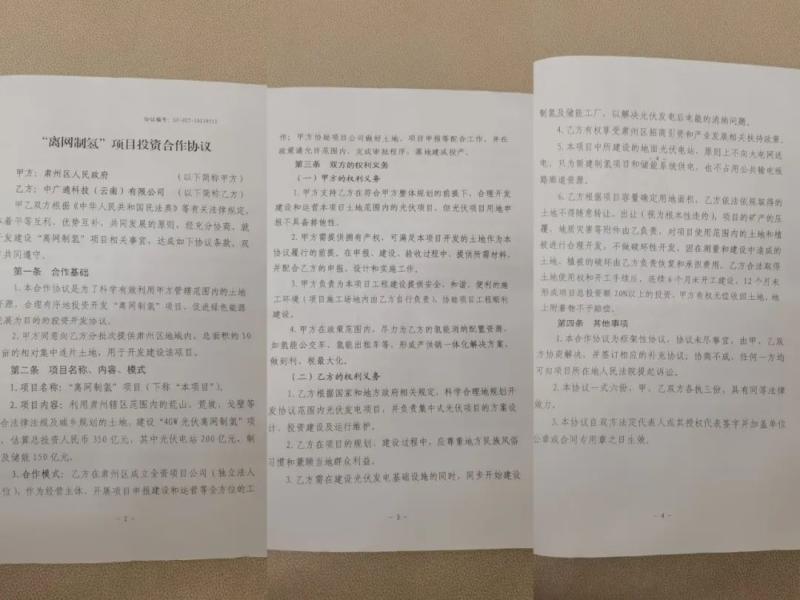 “离网制氢”项目投资合作协议
甲方：肃州区人民政府 （以下简称甲方）
乙方：中广通科技（云南）有限公司 （以下简称乙方）
甲乙双方根据《中华人民共和国民法典》等有关法律规定，
着平等互利、优势互补、共同发展的原则，经充分协商，就
开发建设“离网制氢”项目相关事宜，达成如下协议条款，双
方共同遵守。
第一条 合作基础
1.本合作协议是为了科学有效利用甲方管辖范围内的土地
资源，合理有序地投资开发“离网制氢”项目，促进绿色能源
发展为目的的投资开发协议。
2.甲方同意向乙方分批次提供肃州区地域内，总面积约10
亩的相对集中连片土地，用于开发建设该项目。
第二条 项目名称、内容、模式
1.项目名称：“离网制氢”项目（下称“本项目”）。
2.项目内容：利用肃州辖区范围内的荒山、荒坡、戈壁等
合法律法规及城乡规划的土地，建设“4GW光伏离网制氢”项
，估算总投资人民币350亿元，其中光伏电站200亿元，制
及储能150亿元。
3.合作模式：乙方在肃州区成立全资项目公司（独立法人
位），作为经营主体，开展项目申报建设和运营等全方位的工
- 2 -
作；甲方协助项目公司做好土地、项目申报等配合工作，并在
政策允许范围内，完成审批程序，落地建成投产。
第三条 双方的权利义务
（一）甲方的权利义务
1.甲方支持乙方在符合甲方整体规划的前提下，合理开发
建设和运营本项目土地范围内的光伏项目，但光伏项目用地申
报不具备排他性。
2.甲方需提供拥有产权，可满足本项目开发的土地作为本
协议履行的前提。在申报、建设、验收过程中，提供所需材料，
并配合乙方的申报、设计和实施工作。
3.甲方负责为本项目工程建设提供安全、和谐、便利的施
工环境（项目施工场地内由乙方自行负责），协助项目工程顺利
建设。
4.甲方在政策范围内，尽力为乙方的氢能消纳配置资源，
如氢能公交车、氢能出租车等，形成产供销一体化解决方案，
做到利、税最大化。
（二）乙方的权利义务
1.乙方根据国家和地方政府相关规定，科学合理地规划开
发协议范围内光伏发电项目，并负责集中式光伏项目的方案设
计、投资建设及运行维护。
2.乙方在项目的规划、建设过程中，应尊重地方民族风俗
习惯和兼顾当地群众利益。
3.乙方需在建设光伏发电基础设施的同时，同步开始建设
- 3 -
制氢及储能工厂，以解决光伏发电后电能的消纳问题。
4.乙方有权享受肃州区招商引资和产业发展相关扶持政策。
5.本项目中所建设的地面光伏电站，原则上不向大电网送
电，只为新建制氢项目和储能系统供电，也不占用公共输电线
路廊道资源。
6.乙方根据项目容量确定用地面积，乙方依法依规取得的
土地不得随意转让、出让（视为根本性违约），项目的矿产的压
覆、地质灾害等附件由乙方负责，对项目使用范围内的土地和植
被进行合理开发，不做破坏性开发，因在测量和建设中造成的
土地、植被的破坏由乙方负责恢复和承担费用。乙方合法取得
土地使用权和开工手续后，连续6个月未开工建设，12个月未
形成项目总投资额10%以上的投资，甲方有权无偿收回土地，地
上附着物不予赔偿。
第四条 其他事项
1.本合作协议为框架性协议，协议未尽事宜，由甲、乙双
方协商解决，并签订相应的补充协议；协商不成，任何一方均
可向项目所在地人民法院提起诉讼。
2.本协议一式六份，甲、乙双方各执三份，具有同等法律
效力。
3.本协议自双方法定代表人或其授权代表签字并加盖单位
公章或合同专用章之日生效。
- 4 -